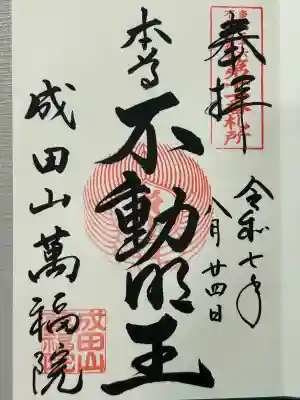 奉拝
令和七年
八月廿四日
本尊
不動明王
成田山萬福院